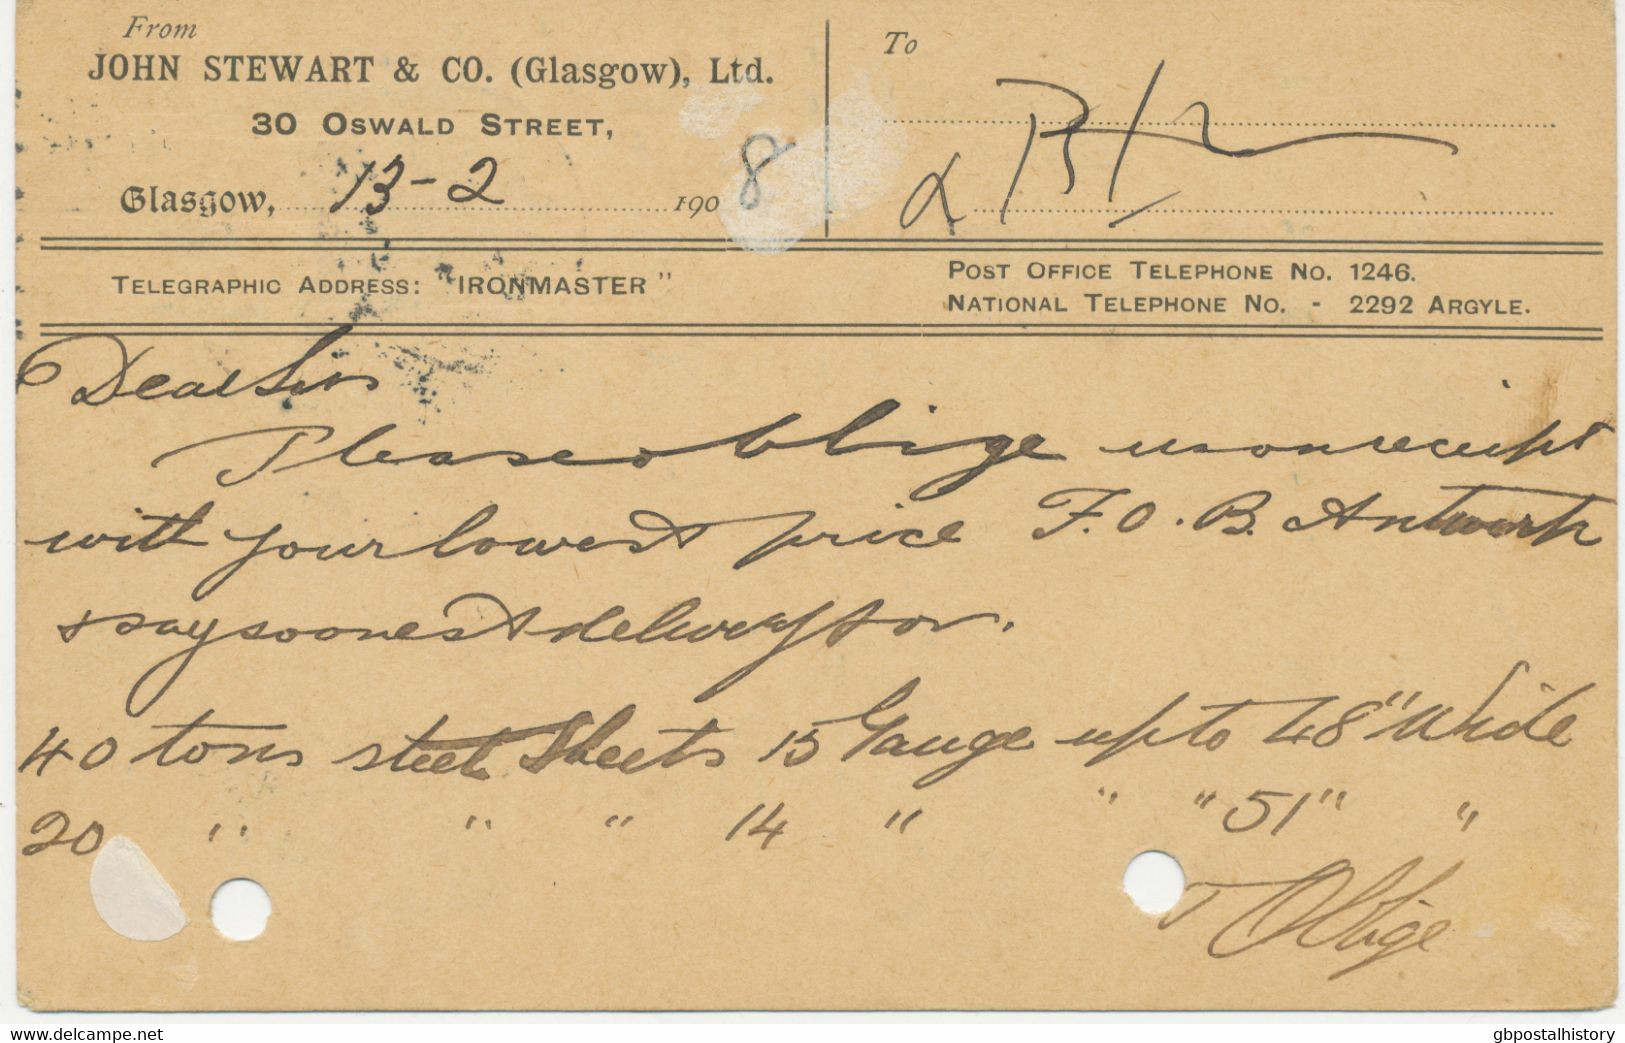 From
JOHN STEWART & CO. (Glasgow), Ltd.
30 OSWALD STREET,
Glasgow, 13-2 1908
To
TELEGRAPHIC ADDRESS: "IRONMASTER"
POST OFFICE TELEPHONE NO. 1246.
NATIONAL TELEPHONE NO. - 2292 ARGYLE.
Dear Sirs
Please oblige us on receipt
with your lowest price F.O.B. Antwerp
& say soonest delivery for.
40 tons steel Sheets 15 Gauge up to 48" Wide
20 " " " 14 " " " 51" "
& Oblige
www.delcampe.net
gbpostalhistory